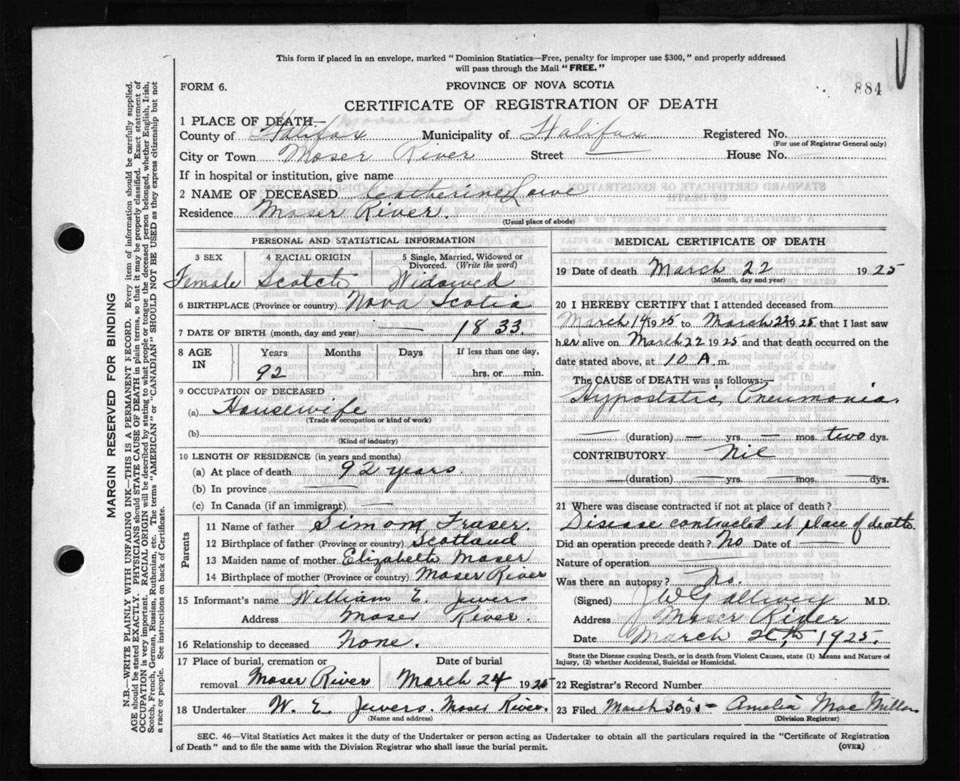 This form if placed in an envelope, marked "Dominion Statistics—Free, penalty for improper use $300," and properly addressed
will pass through the Mail "FREE."
884
FORM 6.
PROVINCE OF NOVA SCOTIA
CERTIFICATE OF REGISTRATION OF DEATH
1 PLACE OF DEATH—
County of Halifax Municipality of Halifax Registered No.
(For use of Registrar General only)
City or Town Moser River Street — House No.
If in hospital or institution, give name
2 NAME OF DECEASED Catherine Lowe
Residence Moser River.
(Usual place of abode)
PERSONAL AND STATISTICAL INFORMATION
3 SEX 4 RACIAL ORIGIN 5 Single, Married, Widowed or
Divorced. (Write the word)
Female Scotch Widowed
6 BIRTHPLACE (Province or country) Nova Scotia
7 DATE OF BIRTH (month, day and year) — 1833.
8 AGE IN Years Months Days If less than one day,
92 hrs. or min.
9 OCCUPATION OF DECEASED
(a) Housewife
(Trade or occupation or kind of work)
(b)
(Kind of industry)
10 LENGTH OF RESIDENCE (in years and months)
(a) At place of death 92 years.
(b) In province —
(c) In Canada (if an immigrant) —
Parents
11 Name of father Simon Fraser.
12 Birthplace of father (Province or country) Scotland
13 Maiden name of mother Elizabeth Moser
14 Birthplace of mother (Province or country) Moser River
15 Informant's name William E. Jewers
Address Moser River.
16 Relationship to deceased None.
17 Place of burial, cremation or Date of burial
removal Moser River March 24 1925
18 Undertaker W. E. Jewers. Moser River.
(Name and address)
MEDICAL CERTIFICATE OF DEATH
19 Date of death March 22 1925
(Month, day and year)
20 I HEREBY CERTIFY that I attended deceased from
March 14 1925 to March 22 1925 that I last saw
her alive on March 22 1925 and that death occurred on the
date stated above, at 10 A. m.
The CAUSE of DEATH was as follows:—
Hypostatic Pneumonia.
— (duration) — yrs. — mos. two dys.
CONTRIBUTORY Nil
— (duration) — yrs. — mos. — dys.
21 Where was disease contracted if not at place of death?
Disease contracted at place of death
Did an operation precede death? No Date of —
Nature of operation —
Was there an autopsy? No.
(Signed) M.D.
Address Moser River
Date March 1925.
State the Disease causing Death, or in death from Violent Causes, state (1) Means and Nature of
Injury, (2) whether Accidental, Suicidal or Homicidal.
22 Registrar's Record Number
23 Filed March 30 1925 — Amelia MacMillan
(Division Registrar)
SEC. 46—Vital Statistics Act makes it the duty of the Undertaker or person acting as Undertaker to obtain all the particulars required in the "Certificate of Registration
of Death" and to file the same with the Division Registrar who shall issue the burial permit.
(OVER)
MARGIN RESERVED FOR BINDING
N.B.—WRITE PLAINLY WITH UNFADING INK—THIS IS A PERMANENT RECORD. Every item of information should be carefully supplied.
AGE should be stated EXACTLY. PHYSICIANS should STATE CAUSE OF DEATH in plain terms, so that it may be properly classified. Exact statement of
OCCUPATION is very important. RACIAL ORIGIN will be described by stating to what people or tongue the deceased person belonged, whether English, Irish,
Scotch, French, German, Russian, Ruthenian, etc. The terms "AMERICAN" or "CANADIAN" SHOULD NOT BE USED as they express citizenship but not
a race or people. See instructions on back of Certificate.